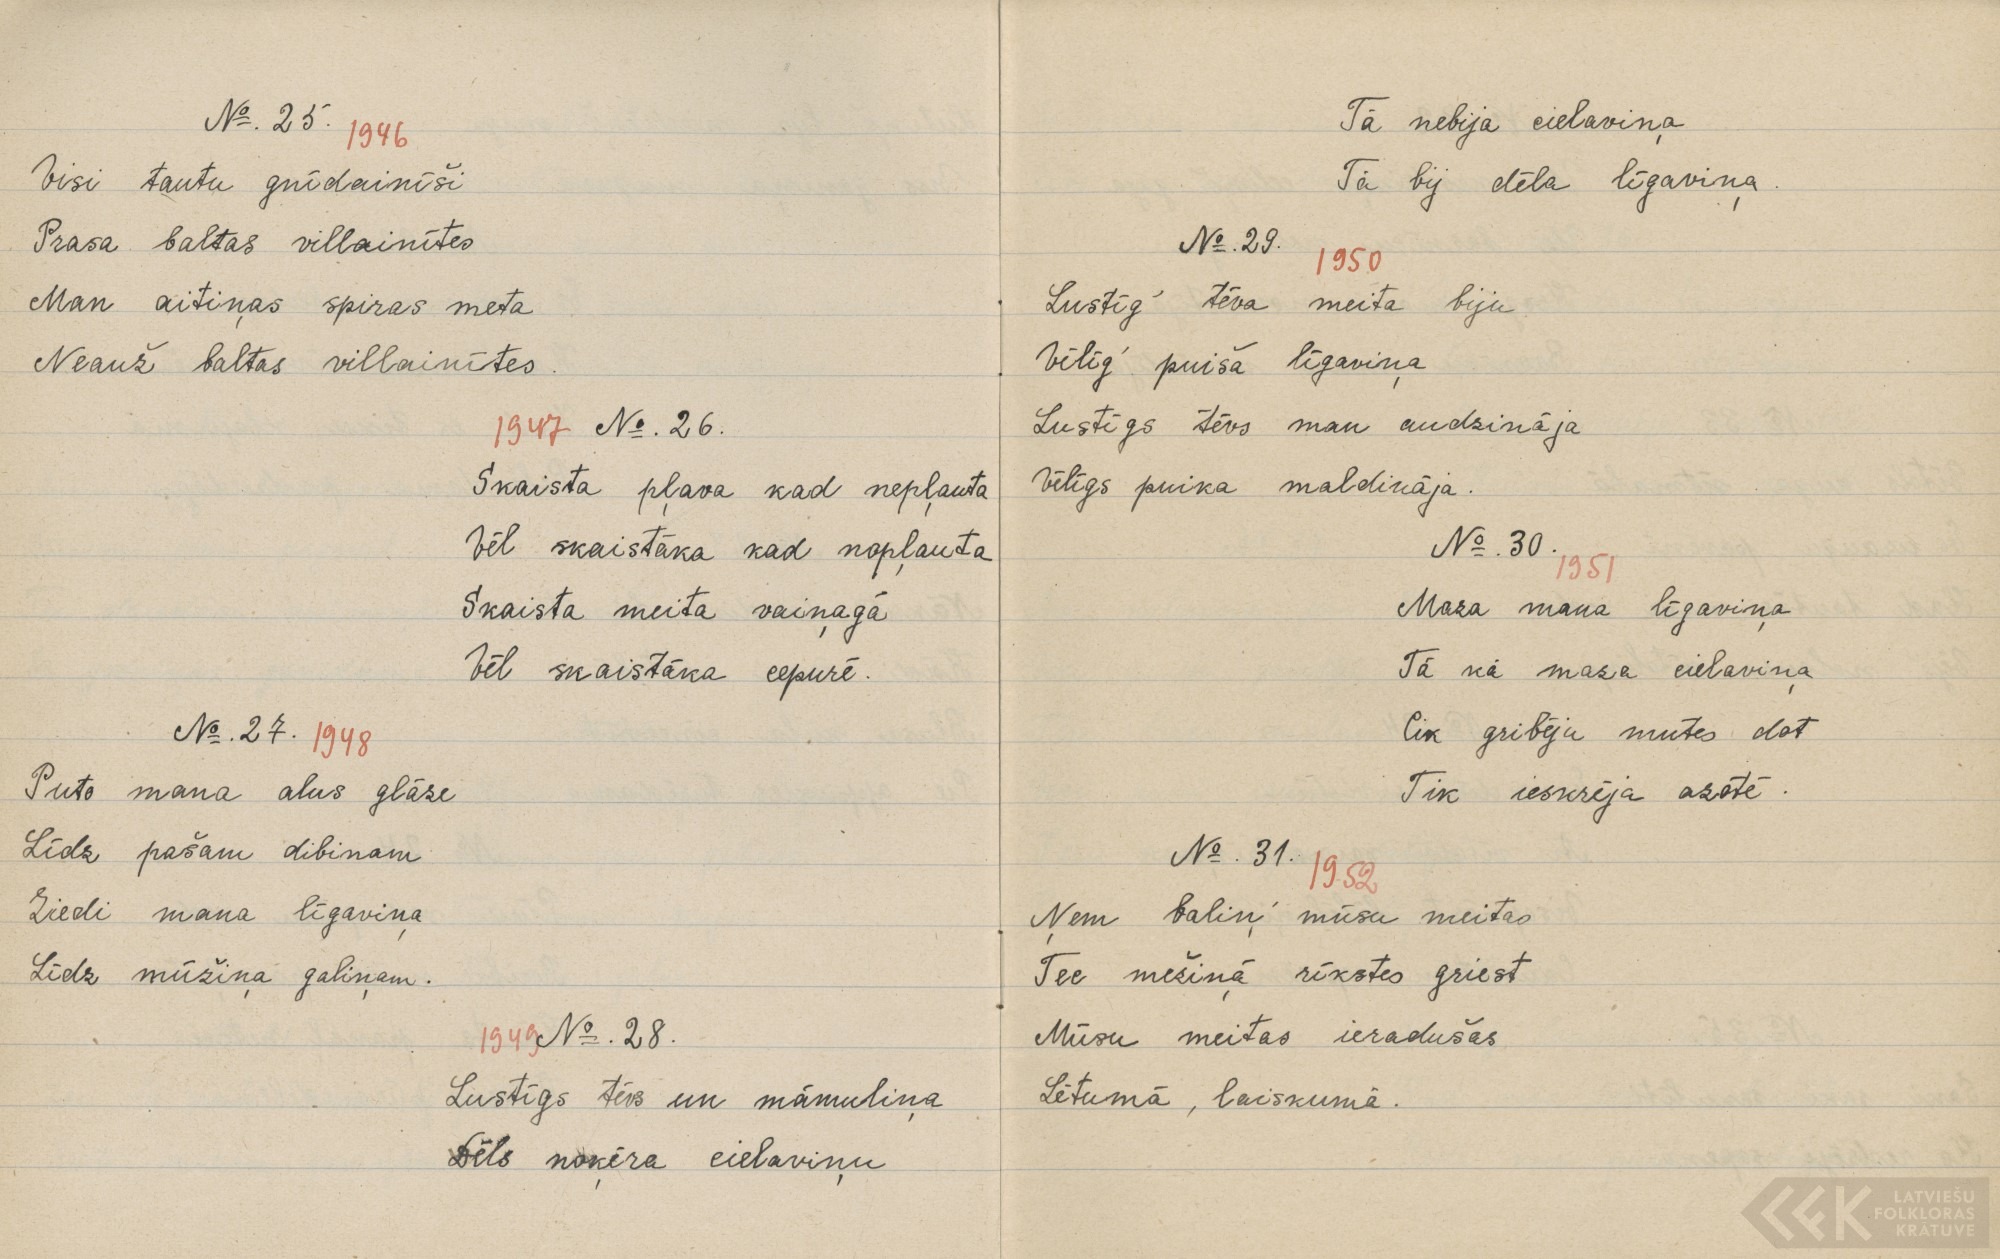 №. 25. 1946
Visi tautu gnīdainīši
Prasa baltas villainītes
Man aitiņas spiras meta
Neauž baltas villainītes.
1947 №. 26.
Skaista pļava kad nepļauta
Vēl skaistāka kad nopļauta
Skaista meita vaiņagā
Vēl skaistāka cepurē.
№. 27. 1948
Puto mana alus glāze
Līdz pašam dibinam
Ziedi mana līgaviņa
Līdz mūžiņa galiņam.
1949 №. 28.
Lustīgs tēvs un māmuliņa
Dēls noķēra cielaviņu
Tā nebija cielaviņa
Tā bij dēla līgaviņa.
№. 29. 1950
Lustīg' tēva meita biju
Vēlīg' puiša līgaviņa
Lustīgs tēvs man audzināja
Vēlīgs puika maldināja.
№. 30. 1951
Maza mana līgaviņa
Tā kā maza cielaviņa
Cik gribēju mutes dot
Tik ieskrēja azōtē.
№. 31. 1952
Ņem baliņ' mūsu meitas
Tec mežiņā rīkstes griest
Mūsu meitas ieradušas
Lētumā, laiskumā.
LATVIEŠU
FOLKLORAS
KRĀTUVE